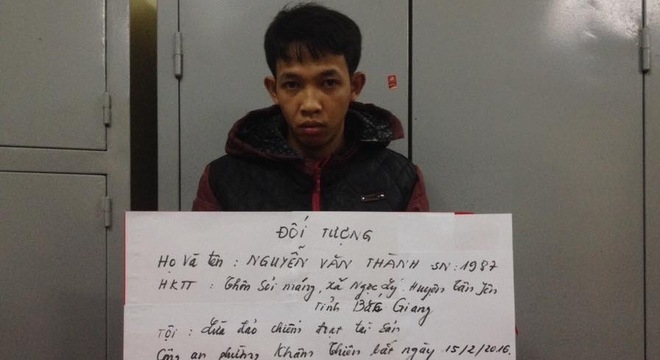 ĐỐI TƯỢNG
Họ và tên : NGUYỄN VĂN THÀNH SN: 1987
HKTT : Thôn Sỏi máng, xã Ngọc Lý, Huyện Tân Yên
Tỉnh Bắc Giang
TỘI : Lừa đảo chiếm đoạt tài sản
Công an phường Khâm Thiên bắt ngày 15/2/2016.